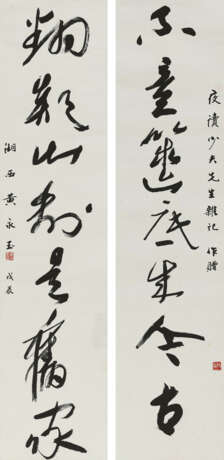 夜讀少夫先生雜記 作贈
不童篋底生今古
翻疑山是舊家
湘西黃永玉 戊辰